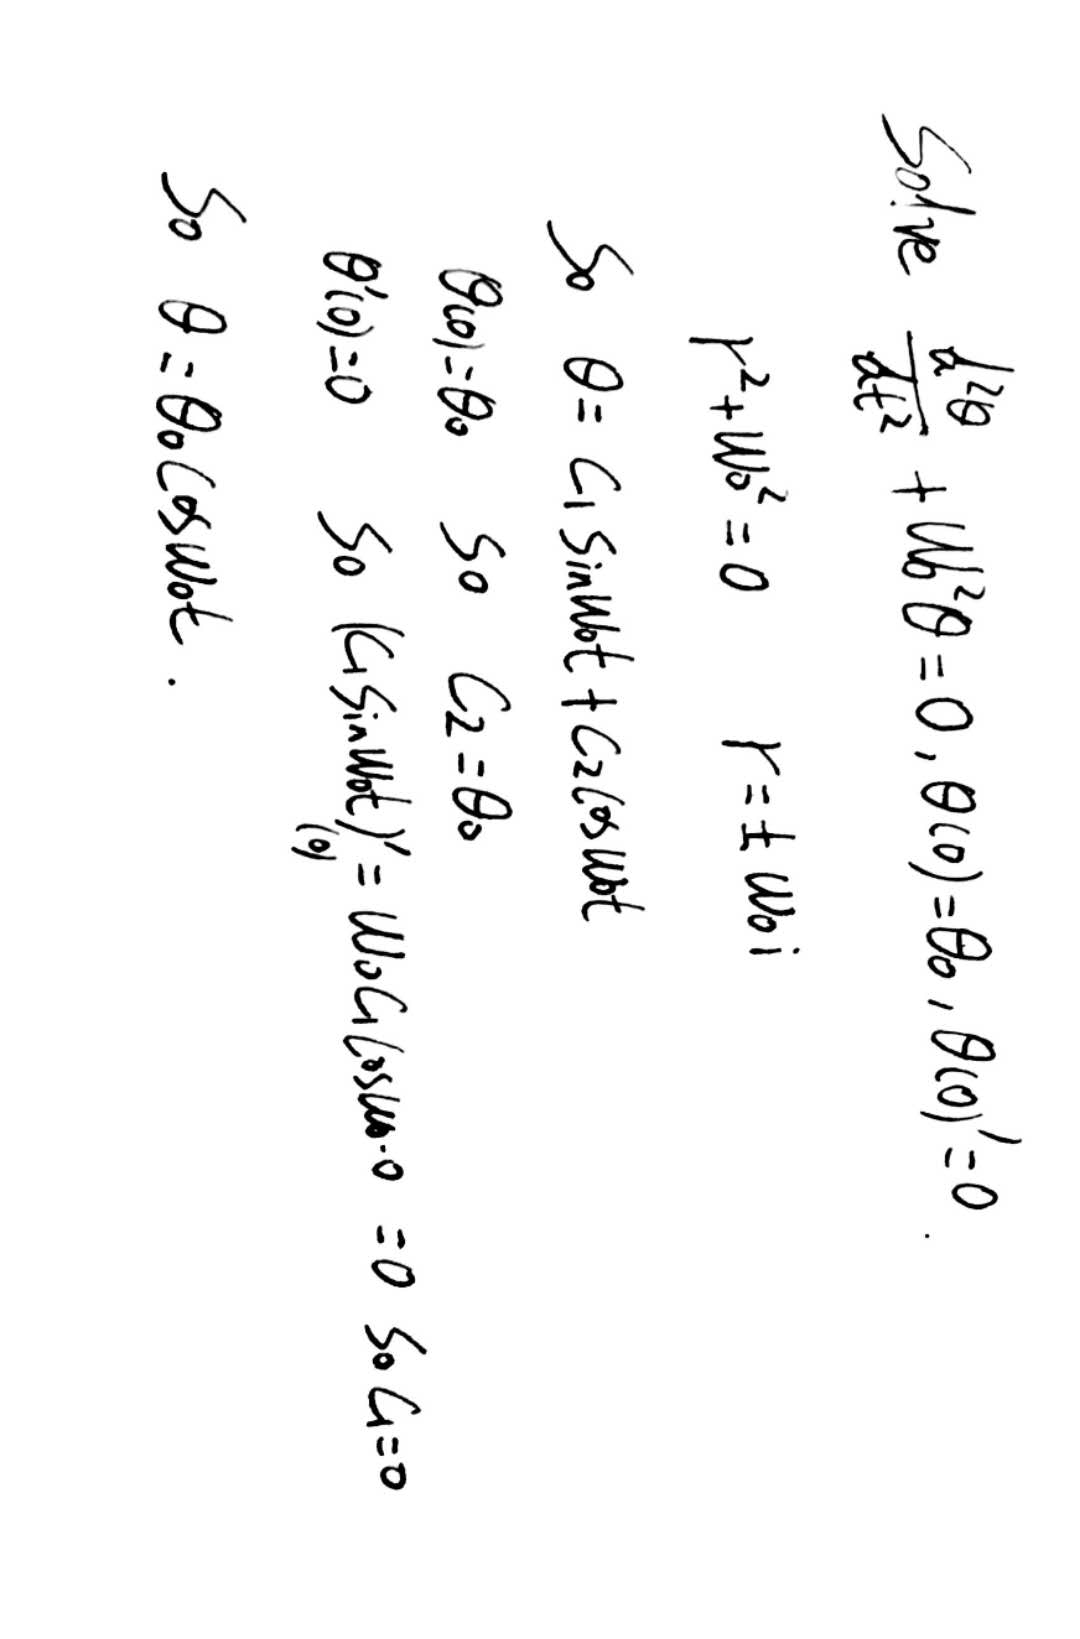 Solve d²θ/dt² + ω₀²θ = 0, θ(0) = θ₀, θ(0)' = 0.
r² + ω₀² = 0 r = ± ω₀i
So θ = C₁ Sinω₀t + C₂ Cosω₀t
θ(0) = θ₀ So C₂ = θ₀
θ'(0) = 0 So (C₁ Sinω₀t)'(0) = ω₀C₁Cosω₀·0 = 0 So C₁ = 0
So θ = θ₀ Cosω₀t.